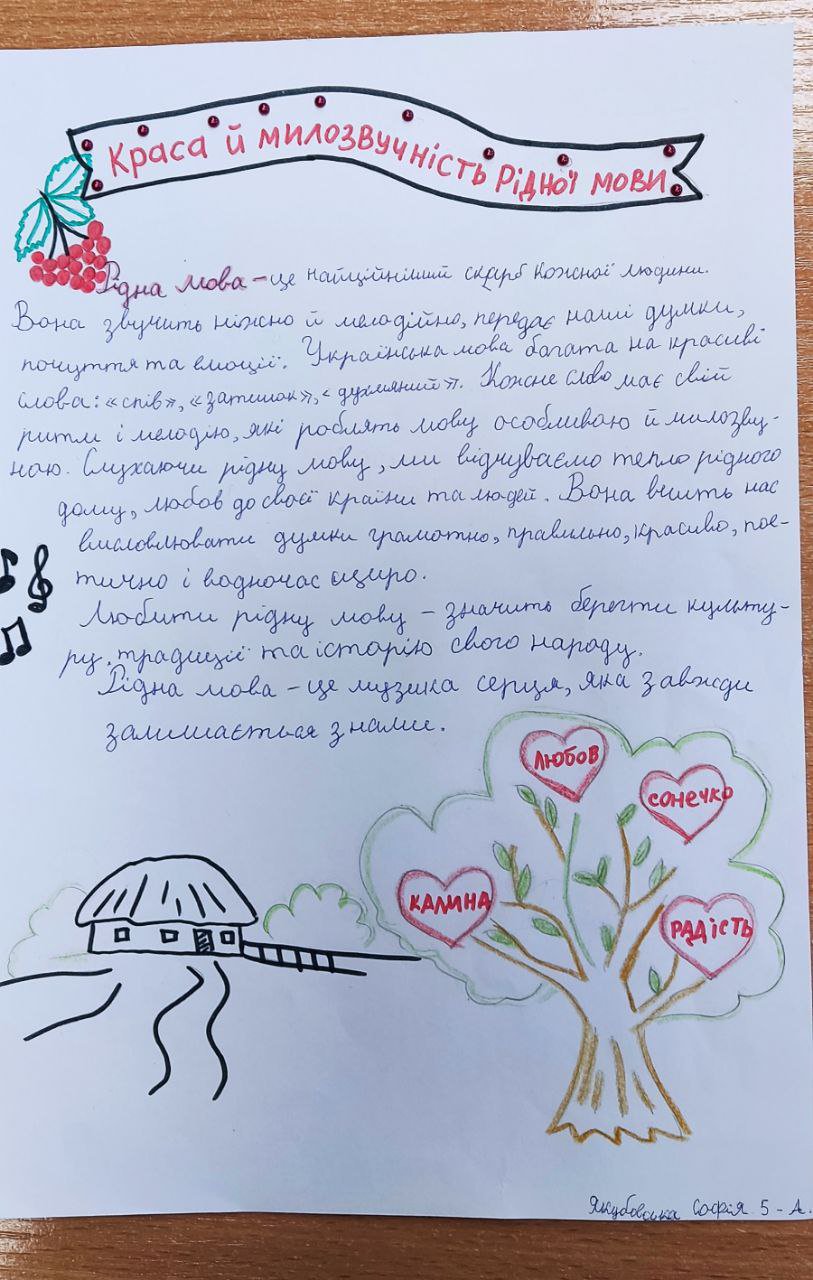 Краса й милозвучність рідної мови
Рідна мова – це найцінніший скарб кожної людини.
Вона звучить ніжно й мелодійно, передає наші думки,
почуття та емоції. Українська мова багата на красиві
слова: «спів», «затишок», «духмяний». Кожне слово має свій
ритм і мелодію, які роблять мову особливою й милозву-
ною. Слухаючи рідну мову, ми відчуваємо тепло рідного
дому, любов до своєї країни та людей. Вона вчить нас
висловлювати думки грамотно, правильно, красиво, пое-
тично і водночас щиро.
Любити рідну мову – значить берегти культу-
ру, традиції та історію свого народу.
Рідна мова – це музика серця, яка завжди
залишається з нами.
любов
сонечко
калина
радість
Якубовська Софія 5-А.